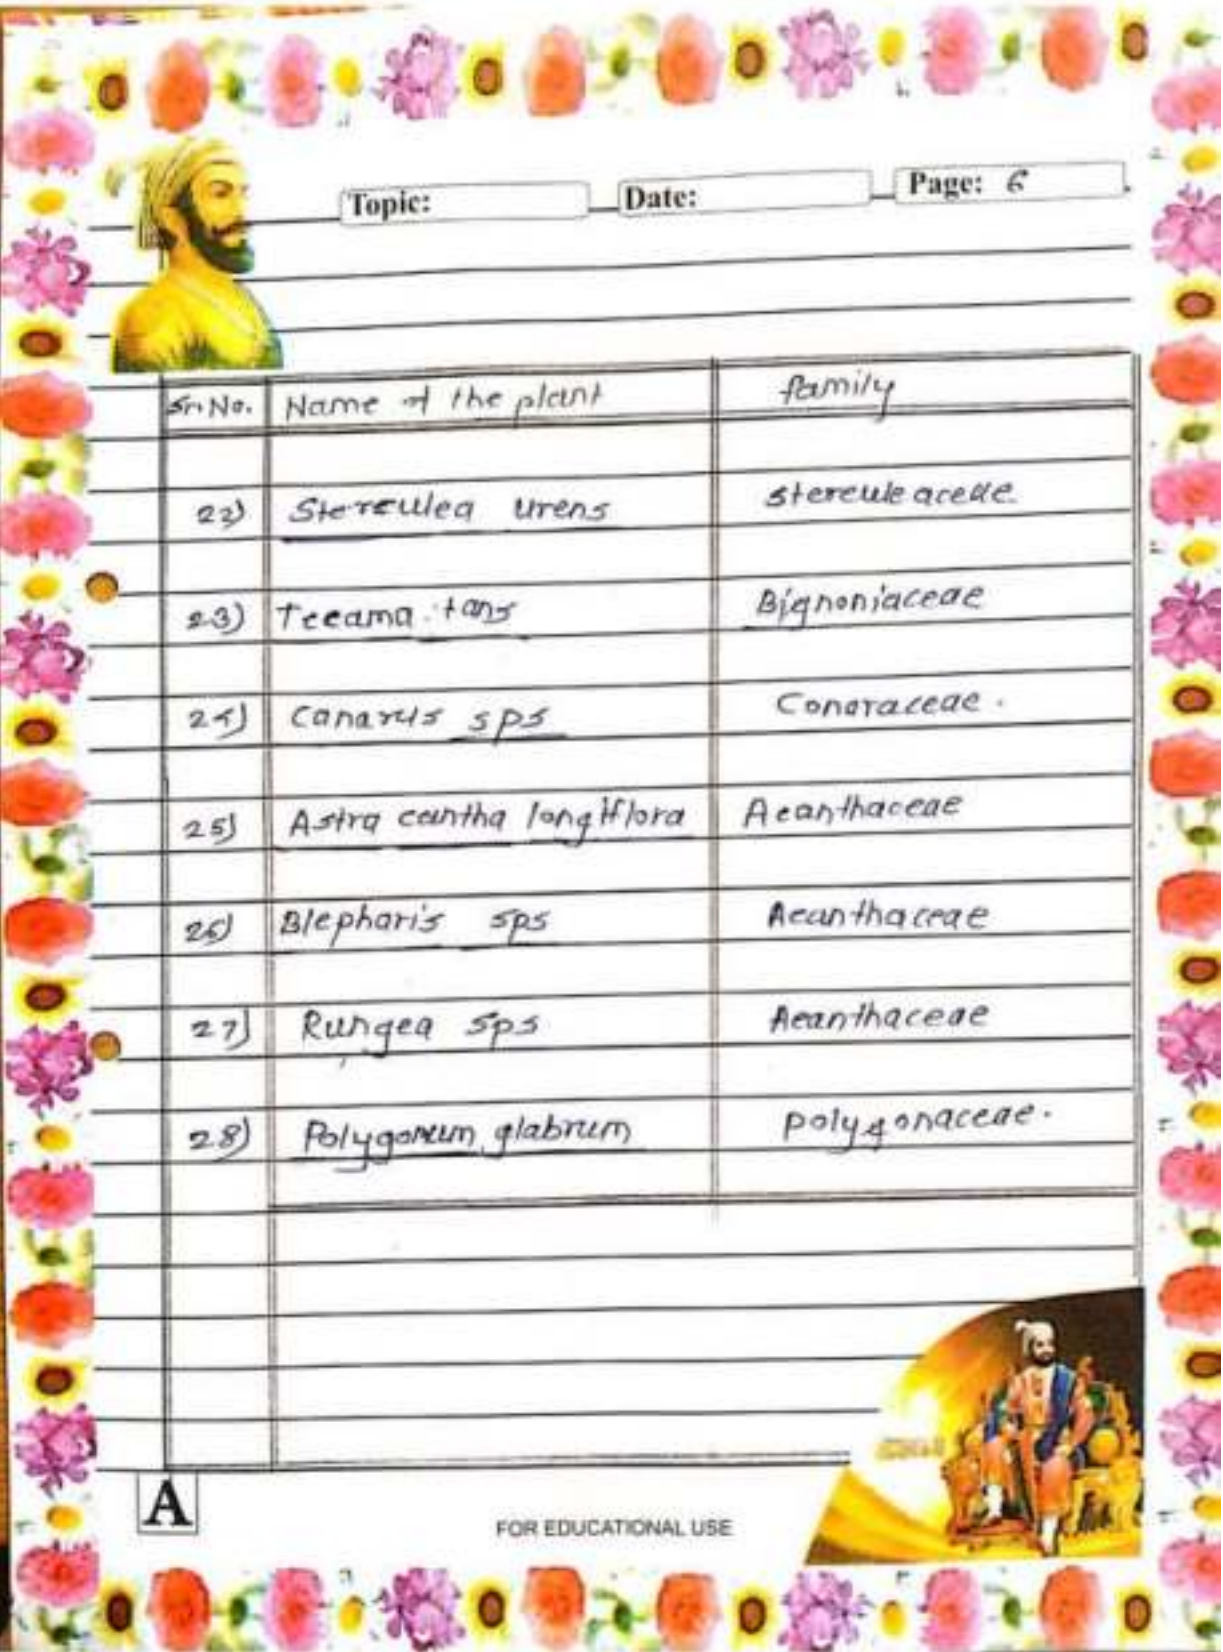 Topic: Date: Page: 6
Sr. No. Name of the plant family
22) Sterculea urens sterculeaceae
23) Tecama tans Bignoniaceae
24) Canarus sps Conaraceae.
25) Astra cantha longiflora Acanthaceae
26) Blepharis sps Acanthaceae
27) Rungea sps Acanthaceae
28) Polygonum glabrum polygonaceae.
A
FOR EDUCATIONAL USE